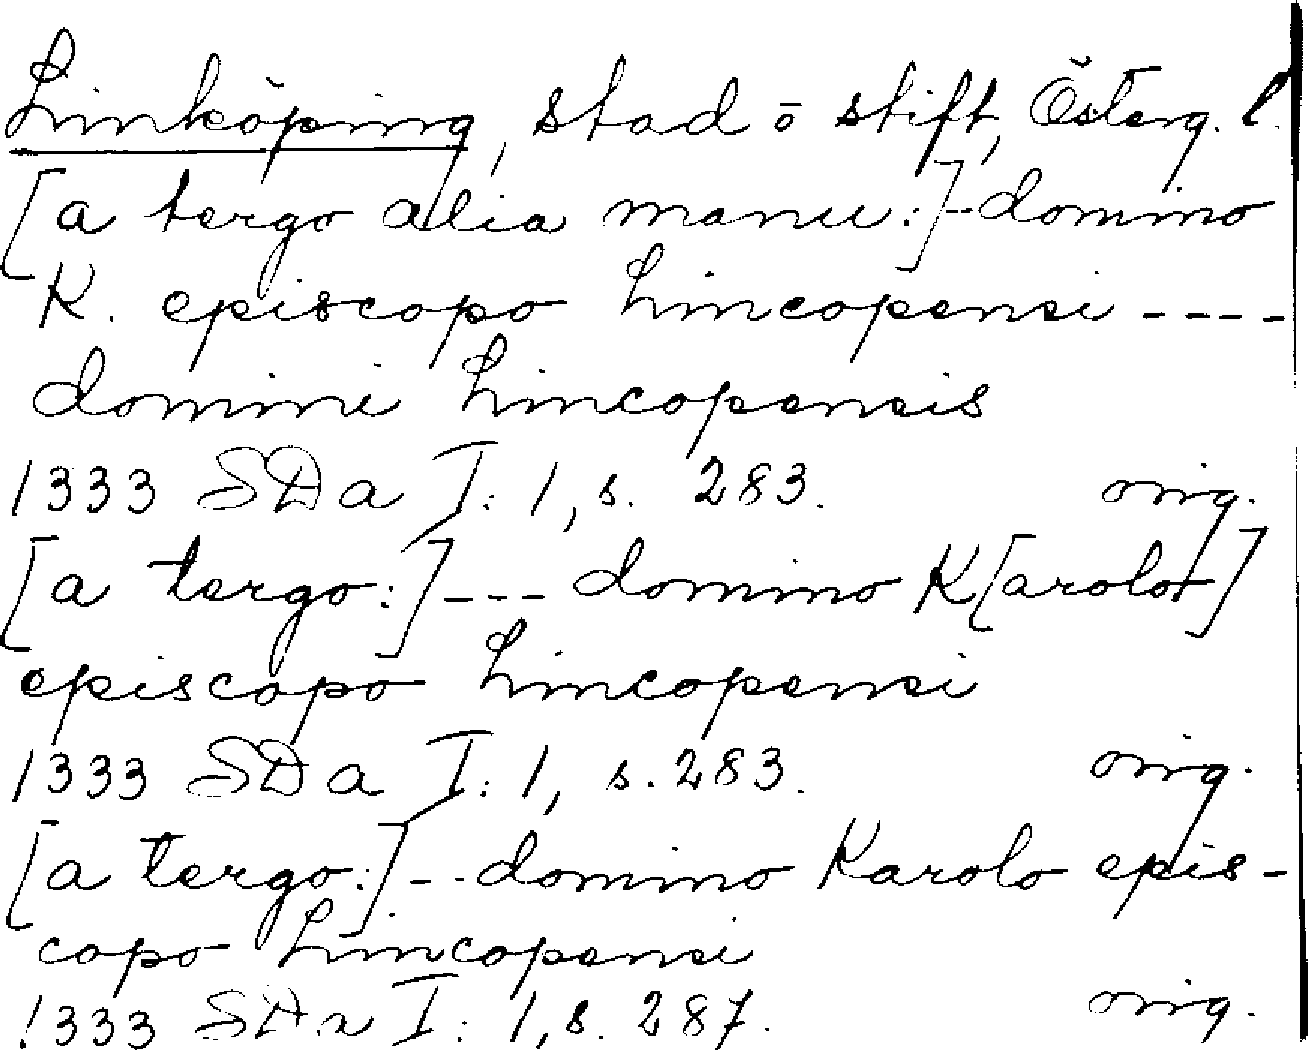 Linköping, stad o stift, Österg. l.
[a tergo alia manu:] -- domino
K. episcopo Lincopensi ----
domini Lincopensis
1333 SDa I: 1, s. 283. orig.
[a tergo:] --- domino K[arolo]
episcopo Lincopensi
1333 SDa I: 1, s. 283. orig.
[a tergo:] --- domino Karolo epis-
copo Lincopensi
1333 SDa I: 1, s. 287. orig.